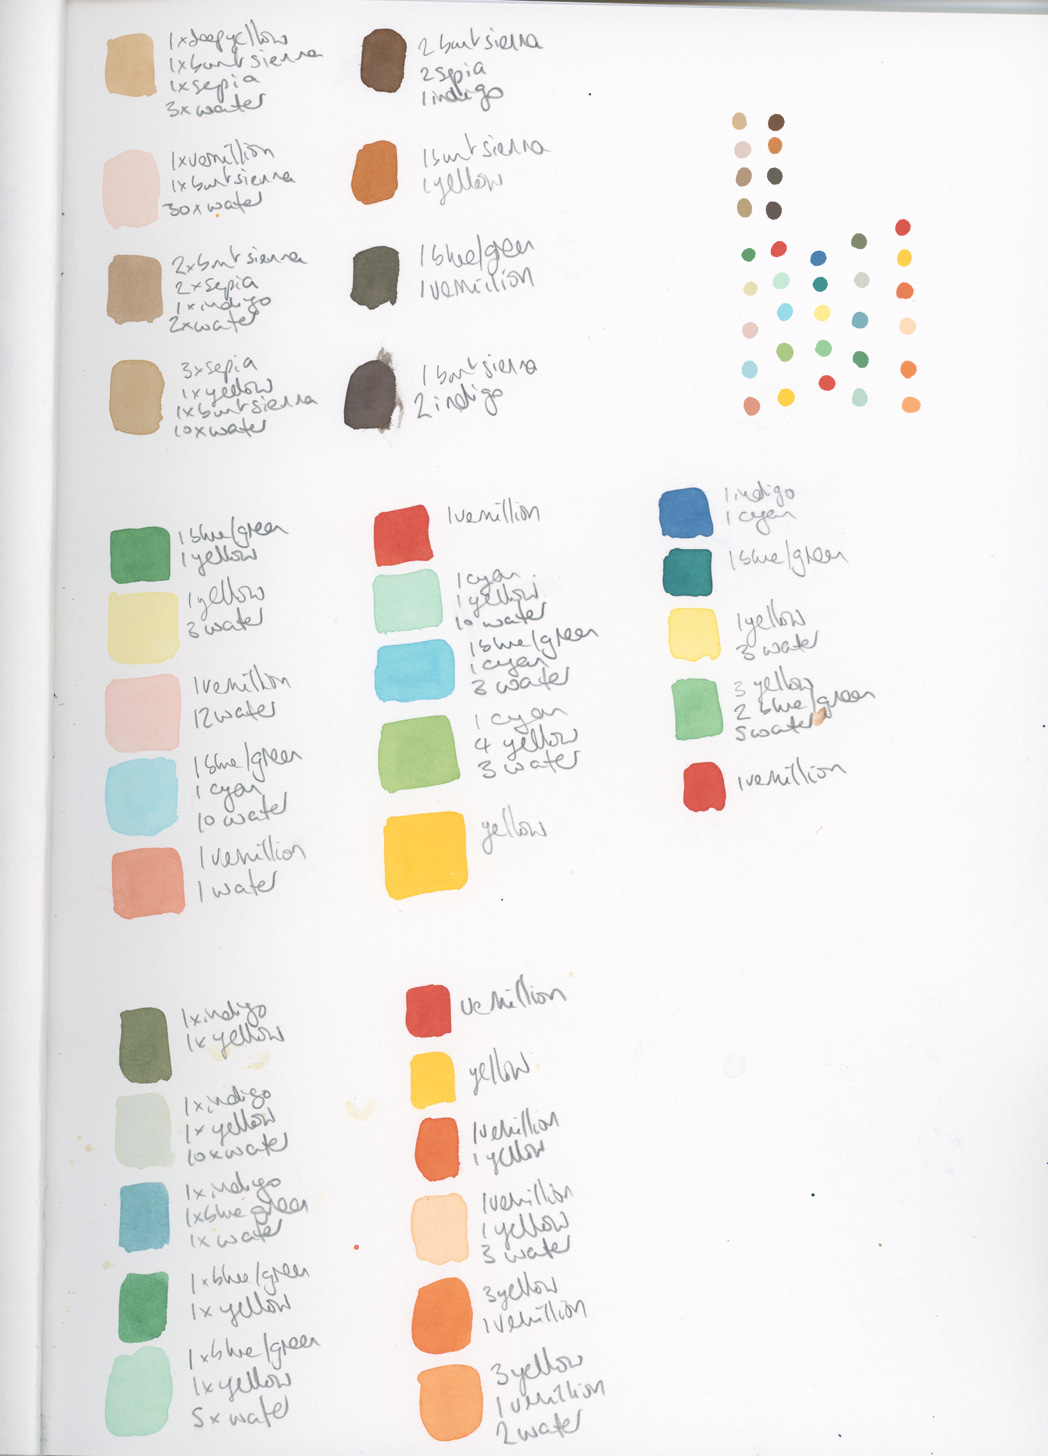 1x deep yellow
1x burnt sienna
1x sepia
3x water
1x vermillion
1x burnt sienna
30x water
2x burnt sienna
2x sepia
1x indigo
2x water
3x sepia
1x yellow
1x burnt sienna
10x water
2 burnt sienna
2 sepia
1 indigo
1 burnt sienna
1 yellow
1 blue/green
1 vermillion
1 burnt sienna
2 indigo
1 blue/green
1 yellow
1 yellow
3 water
1 vermillion
12 water
1 blue/green
1 cyan
10 water
1 vermillion
1 water
1 vermillion
1 cyan
1 yellow
10 water
1 blue/green
1 cyan
3 water
1 cyan
4 yellow
3 water
yellow
1 indigo
1 cyan
1 blue/green
1 yellow
3 water
3 yellow
2 blue/green
5 water
1 vermillion
1x indigo
1x yellow
1x indigo
1x yellow
10x water
1x indigo
1x blue green
1x water
1x blue/green
1x yellow
1x blue/green
1x yellow
5x water
vermillion
yellow
1 vermillion
1 yellow
1 vermillion
1 yellow
3 water
3 yellow
1 vermillion
3 yellow
1 vermillion
2 water